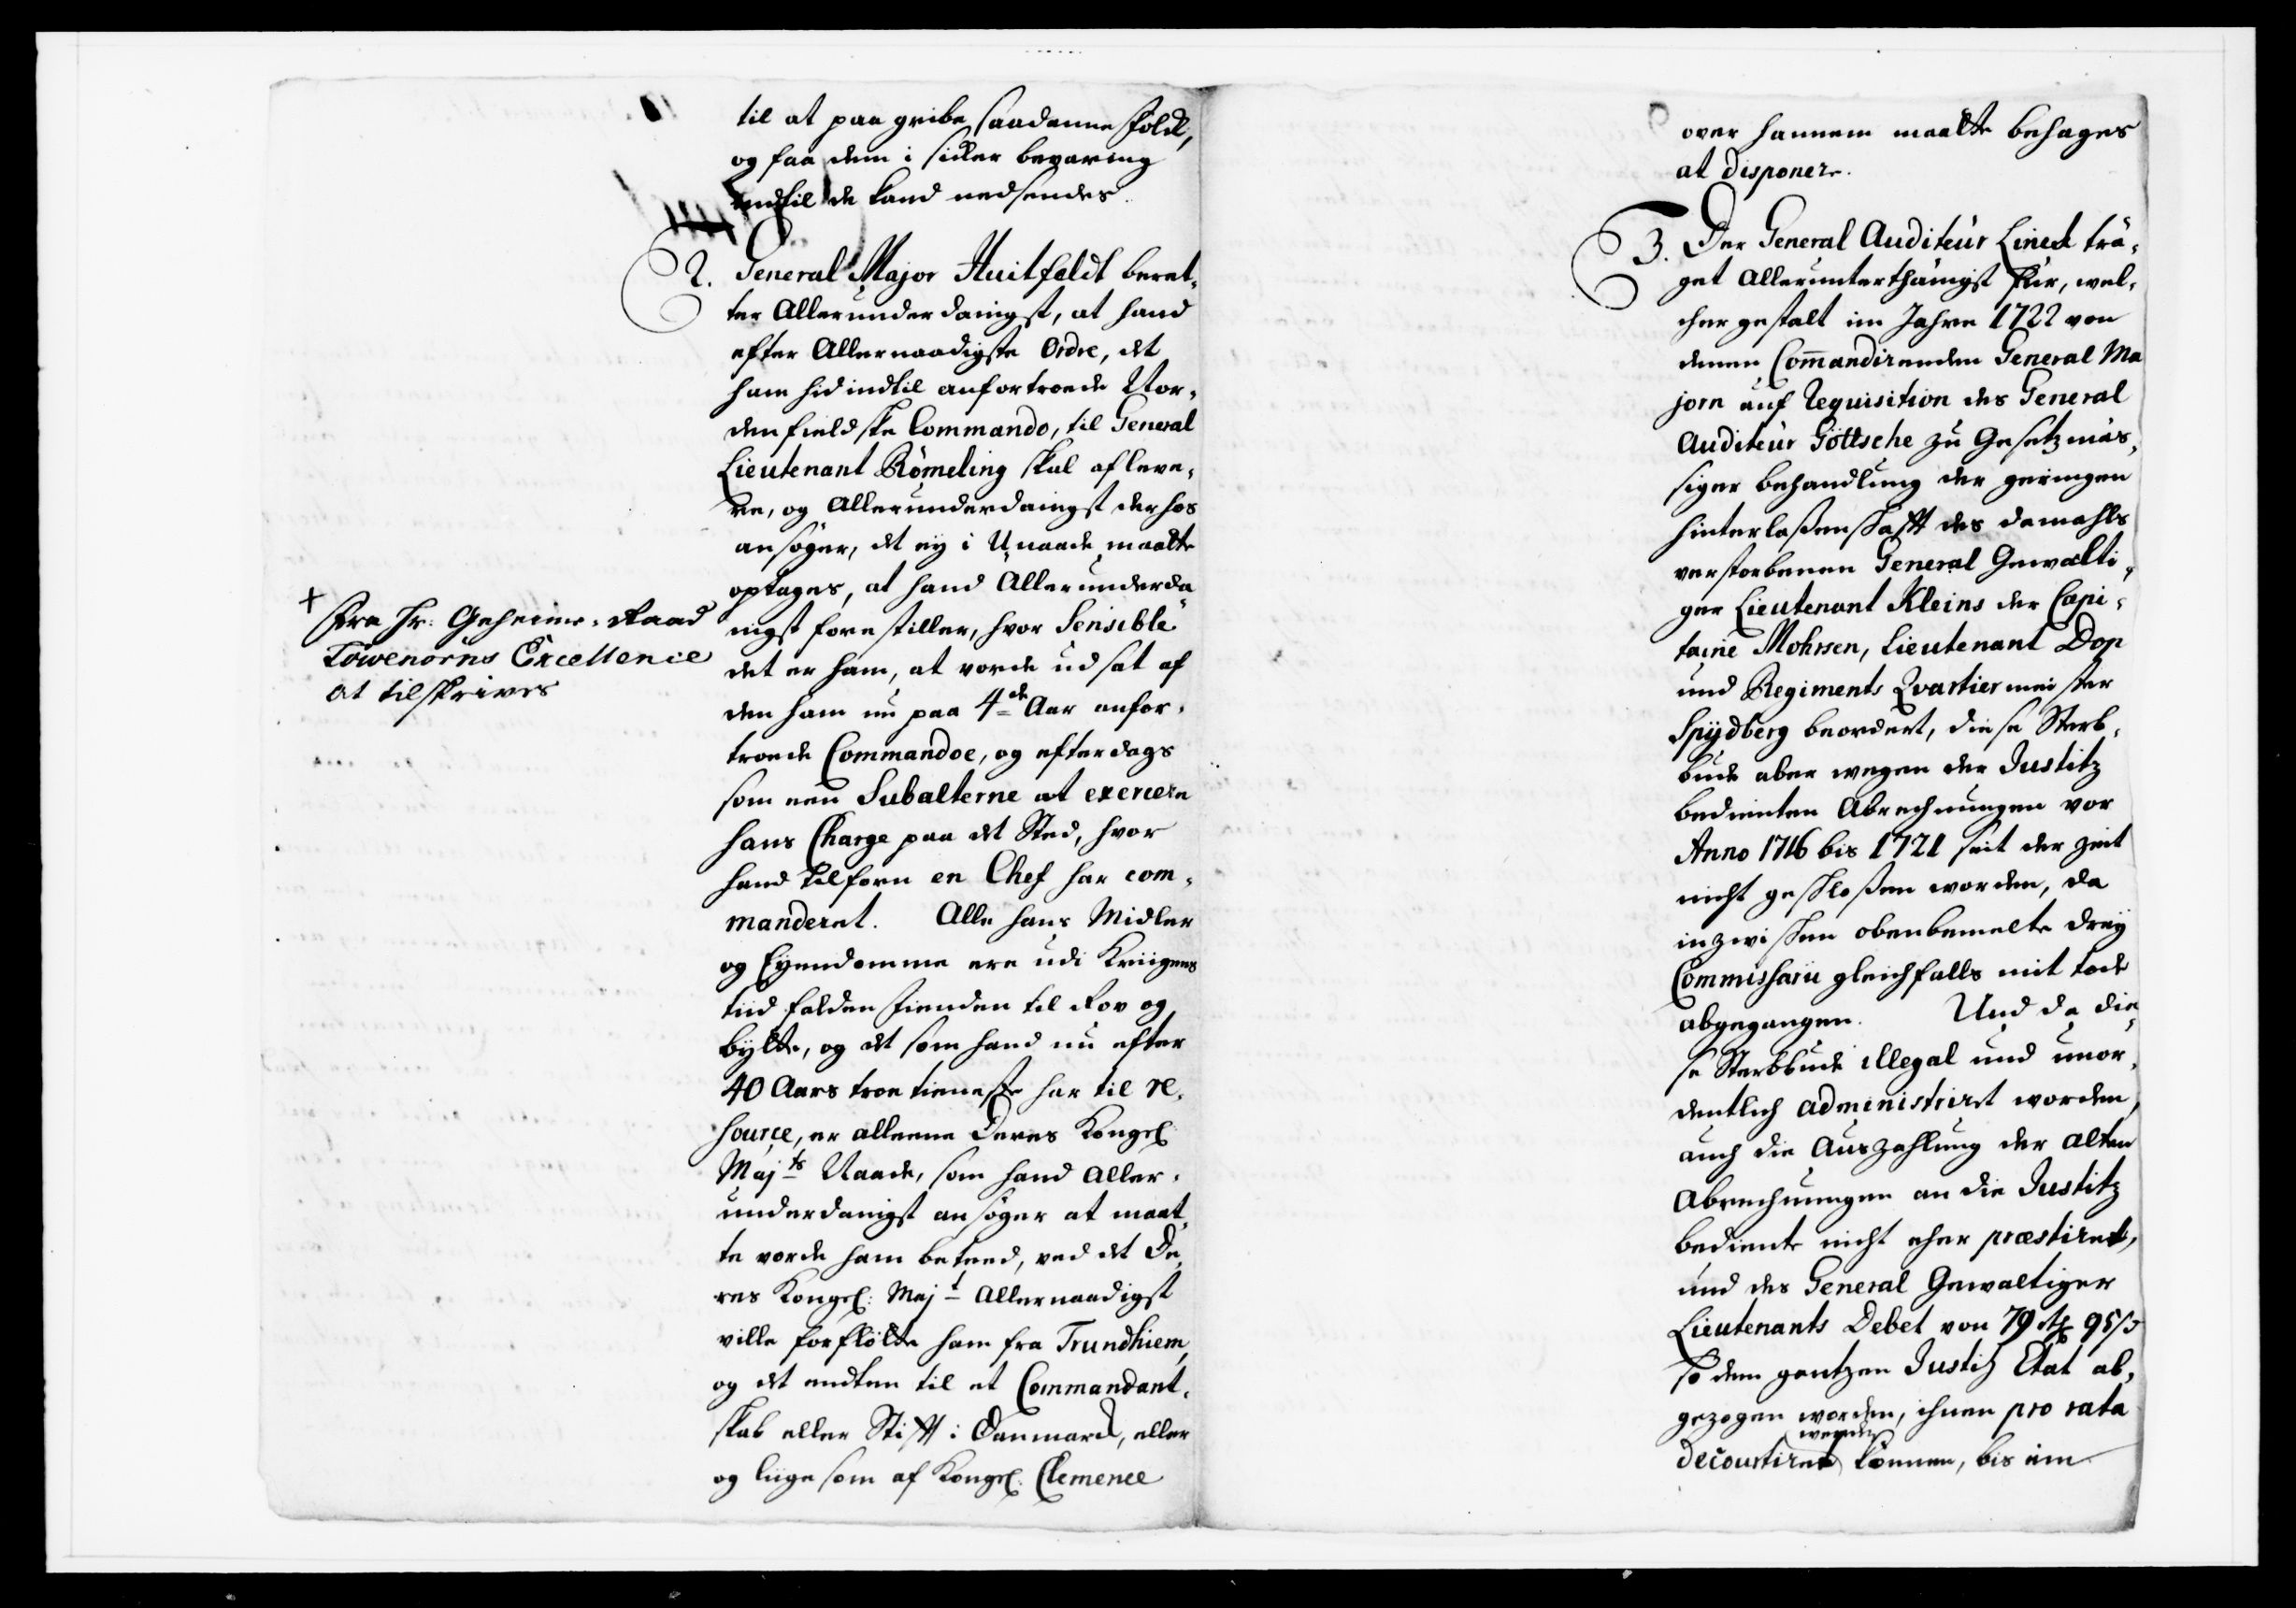 til at paa gribe saadanne Folck,
og faa dem i sicker bevaring
indtil de kand nedsendes.
2. General Major Huitfeldt beret-
ter Allerunderdanigst, at hand
efter Allernaadigste Ordre, det
ham hid indtil anfortroede Nor-
denfieldske Commando, til General
Lieutenant Römeling skal afleve-
re, og Allerunderdanigst derhos
ansöger, det ey i Unaade maatte
optages, at hand Allerunderda-
nigst forestiller, hvor Sensible
det er ham, at vorde udsat af
den ham nu paa 4de Aar anfor-
troede Commandoe, og efterdags
som een Subalterne at exercere
hans Charge paa det Sted, hvor
hand tilforn en Chef har com-
manderet. Alle hans Midler
og Eyendomme ere udi Kriigens
tiid falden Fienden til Rov og
bytte, og det som hand nu efter
40 Aars troe tieneste har til re-
source, er alleene Deres Kongel:
Majts Naade, som hand Aller-
underdanigst ansöger at maat-
te vorde ham beteed, ved det De-
res Kongel: Majt Allernaadigst
ville forflötte ham fra Trundhiem,
og det endten til et Commandant-
skab eller Stifft i Danmarck, eller
og liigesom af Kongel: Clemence
+
Hr: Geheime-Raad
Löwenörns Excellence
at tilskrives
over hannem maatte behages
at disponere.
3. Der General Auditeur Linedt trä-
get Allerunterthänigst für, wel-
cher gestalt im Jahre 1722 von
denen Commandirenden General Ma
jorn auf Requisition des General
Auditeur Göttsche zu Gesetzmäs-
siger behandlung der geringen
hinterlaßenschafft des damahls
verstorbenen General Gewalti-
ger Lieutenant Kleins der Capi-
taine Mohrsen, Lieutenant Dop
und Regiments Qvartiermeister
Spydberg beordert, diese Sterb-
bude aber wegen der Justitz
bedienten Abrechnungen vor
Anno 1716 bis 1721 seit der Zeit
nicht geschloßen worden, da
inzwischen obenbemelte drey
Commissarii gleichfalls mit tode
abgegangen. Und da die-
se Sterbbude illegal und unor-
dentlich administriret worden,
auch die Auszahlung der alten
Abrechnungen an die Justitz
bediente nicht eher præstiret,
und des General Gewaltiger
Lieutenants Debet von 79 rh 95 ß
so dem gantzen Justitz Etat ab-
gezogen worden, ihnen pro rata
werden
decourtiret können, bis im